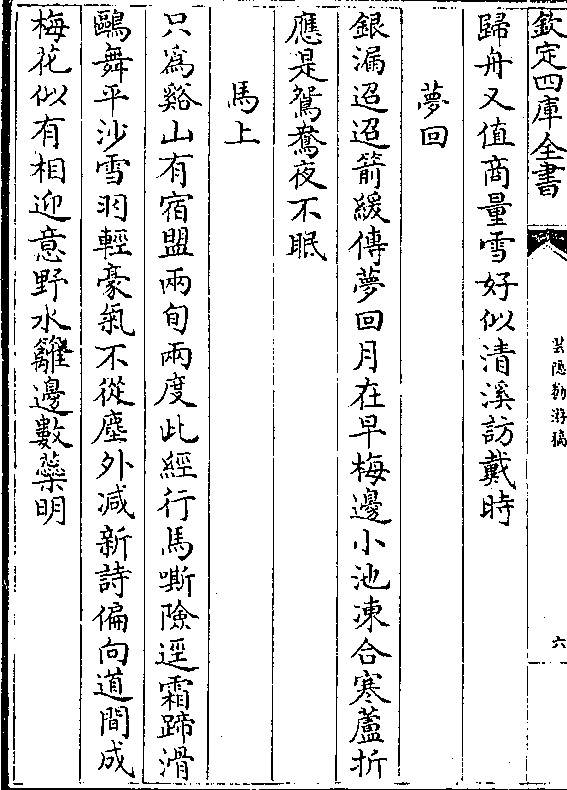 欽定四庫全書
芸隠勌游稿
六
歸舟又值商量雪好似清溪訪戴時
夢回
銀漏迢迢箭緩傳夢回月在早梅邊小池凍合寒蘆折
應是鴛鴦夜不眠
馬上
只為谿山有宿盟兩旬兩度此經行馬嘶險逕霜蹄滑
鷗舞平沙雪羽輕豪氣不從塵外减新詩偏向道間成
梅花似有相迎意野水籬邊數蘂明